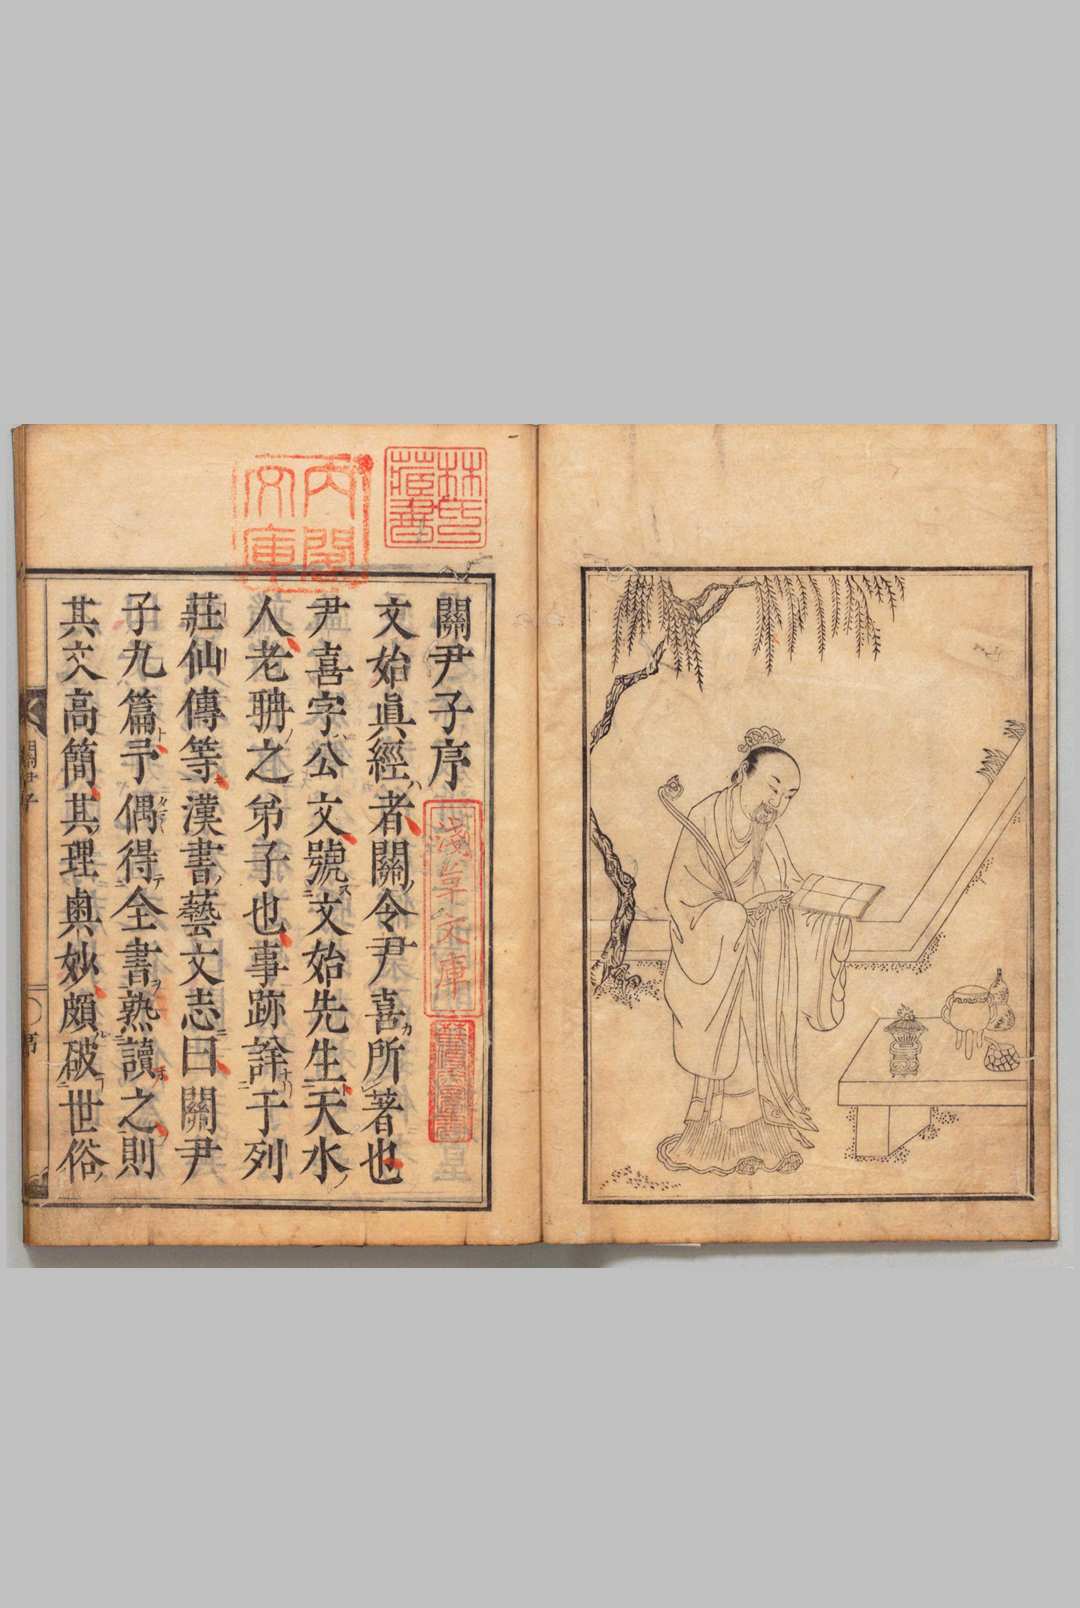 關尹子序
文始眞經者關令尹喜所著也
尹喜字公文號文始先生天水
人老聃之弟子也事跡詮于列
莊仙傳等漢書藝文志曰關尹
子九篇予偶得全書熟讀之則
其文高簡其理奥妙頗破世俗
林氏藏書
内閣文庫
淺草文庫
關尹子
序